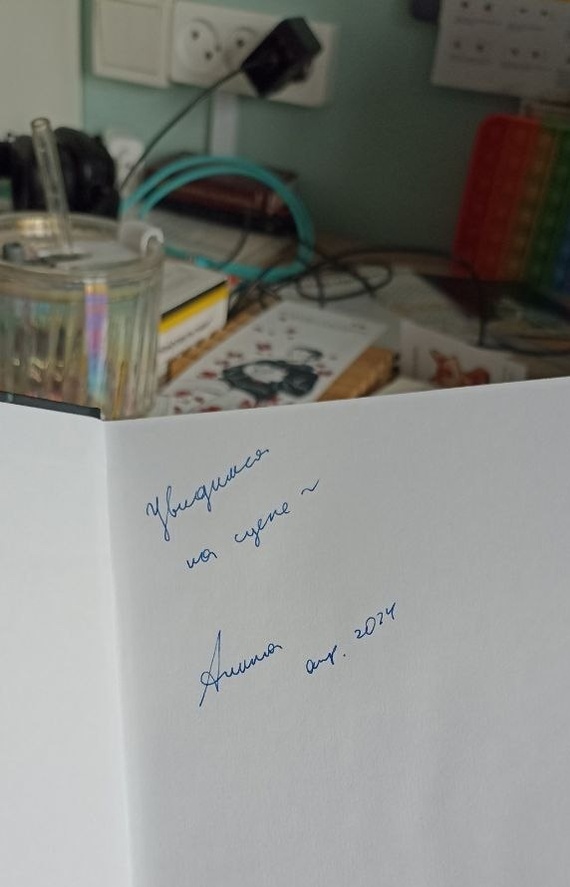 Увидимся
на сцене ~
Алина
апр. 2024